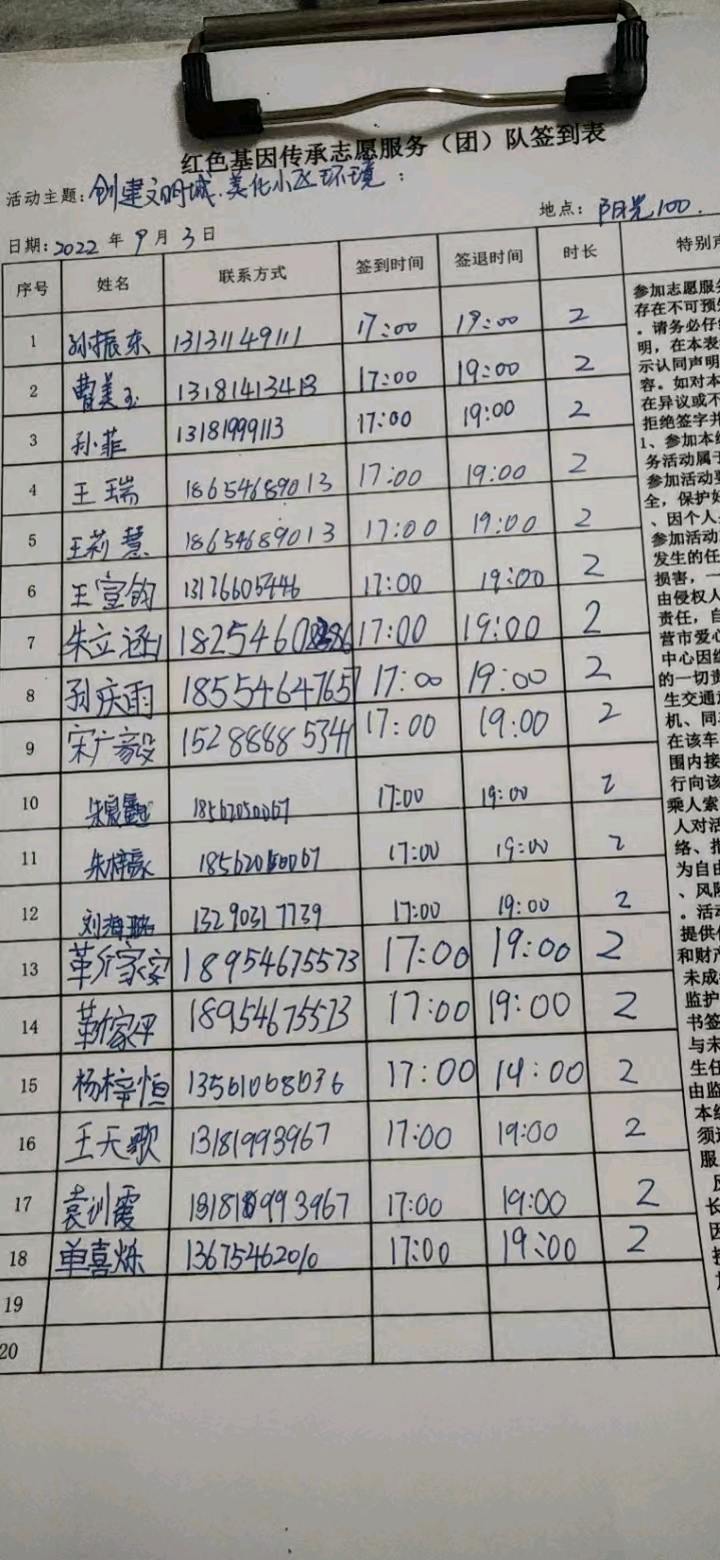 红色基因传承志愿服务（团）队签到表
活动主题：创建文明城.美化小区环境：
地点：阳光100.
日期：2022 年 9 月 3 日
序号 姓名 联系方式 签到时间 签退时间 时长 特别声
1 孙振东 13131149111 17:00 19:00 2
2 曹美玉 13181413413 17:00 19:00 2
3 孙菲 13181999113 17:00 19:00 2
4 王瑞 18654689013 17:00 19:00 2
5 王莉慧 18654689013 17:00 19:00 2
6 王宣钧 13176605446 17:00 19:00 2
7 朱立涵 17:00 19:00 2
8 孙庆雨 18554647657 17:00 19:00 2
9 宋广毅 15288885341 17:00 19:00 2
10 18562050067 17:00 19:00 2
11 朱梓豪 17:00 19:00 2
12 刘海 13290317739 17:00 19:00 2
13 靳家安 18954675573 17:00 19:00 2
14 靳家平 18954675573 17:00 19:00 2
15 杨梓恒 13561068036 17:00 14:00 2
16 王天歌 13181993967 17:00 19:00 2
17 袁训霞 17:00 19:00 2
18 单喜烁 13675462010 17:00 19:00 2
19
20
参加志愿服务
存在不可预
。请务必仔
明，在本表
示认同声明
容。如对本
在异议或不
拒绝签字并
1、参加本
务活动属于
参加活动
全，保护好
、因个人
参加活动
发生的任
损害，一
由侵权人
责任，自
营市爱心
中心因组
的一切责
生交通
机、同
在该车
围内接
行向该
乘人索
人对活
络、指
为自由
、风险
。活动
提供
和财产
未成
监护
书签
与未
生任
由监
本组
须
服
长
因